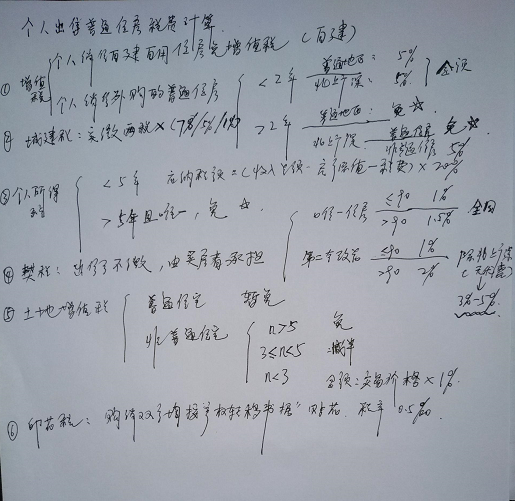 个人出售普通住房税费计算
① 增值税 个人销售自建自用住房免增值税 (自建)
个人销售外购的普通住房 <2年 普通地区: 5% 全额
北上广深: 5%
>2年 普通地区: 免 ☆
北上广深 普通住房 免 ☆
非普通住房 5%
② 城建税: 实缴两税×(7%/5%/1%)
③ 个人所得税 <5年 应纳税额=(收入总额-房产原值-税费)×20%
>5年且唯一, 免 ☆
④ 契税: 出售方不缴, 由买房者承担 唯一住房 ≤90 1% 全国
>90 1.5%
第二套改善 ≤90 1% 除北上广深
>90 2%
3%-5%
⑤ 土地增值税 普通住宅 暂免
非普通住宅 n>5 免
3≤n≤5 :减半
n<3 全额:交易价格×1%
⑥ 印花税: 购销双方均按"产权转移书据"贴花. 税率 0.5‰